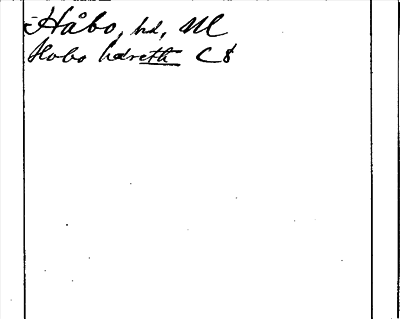 Håbo, hd, M
Habo hdreth C8